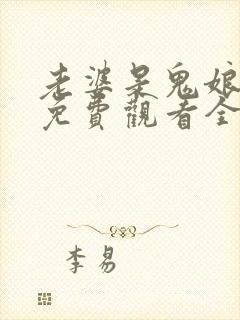 老婆是鬼娘
免費觀看全
李易